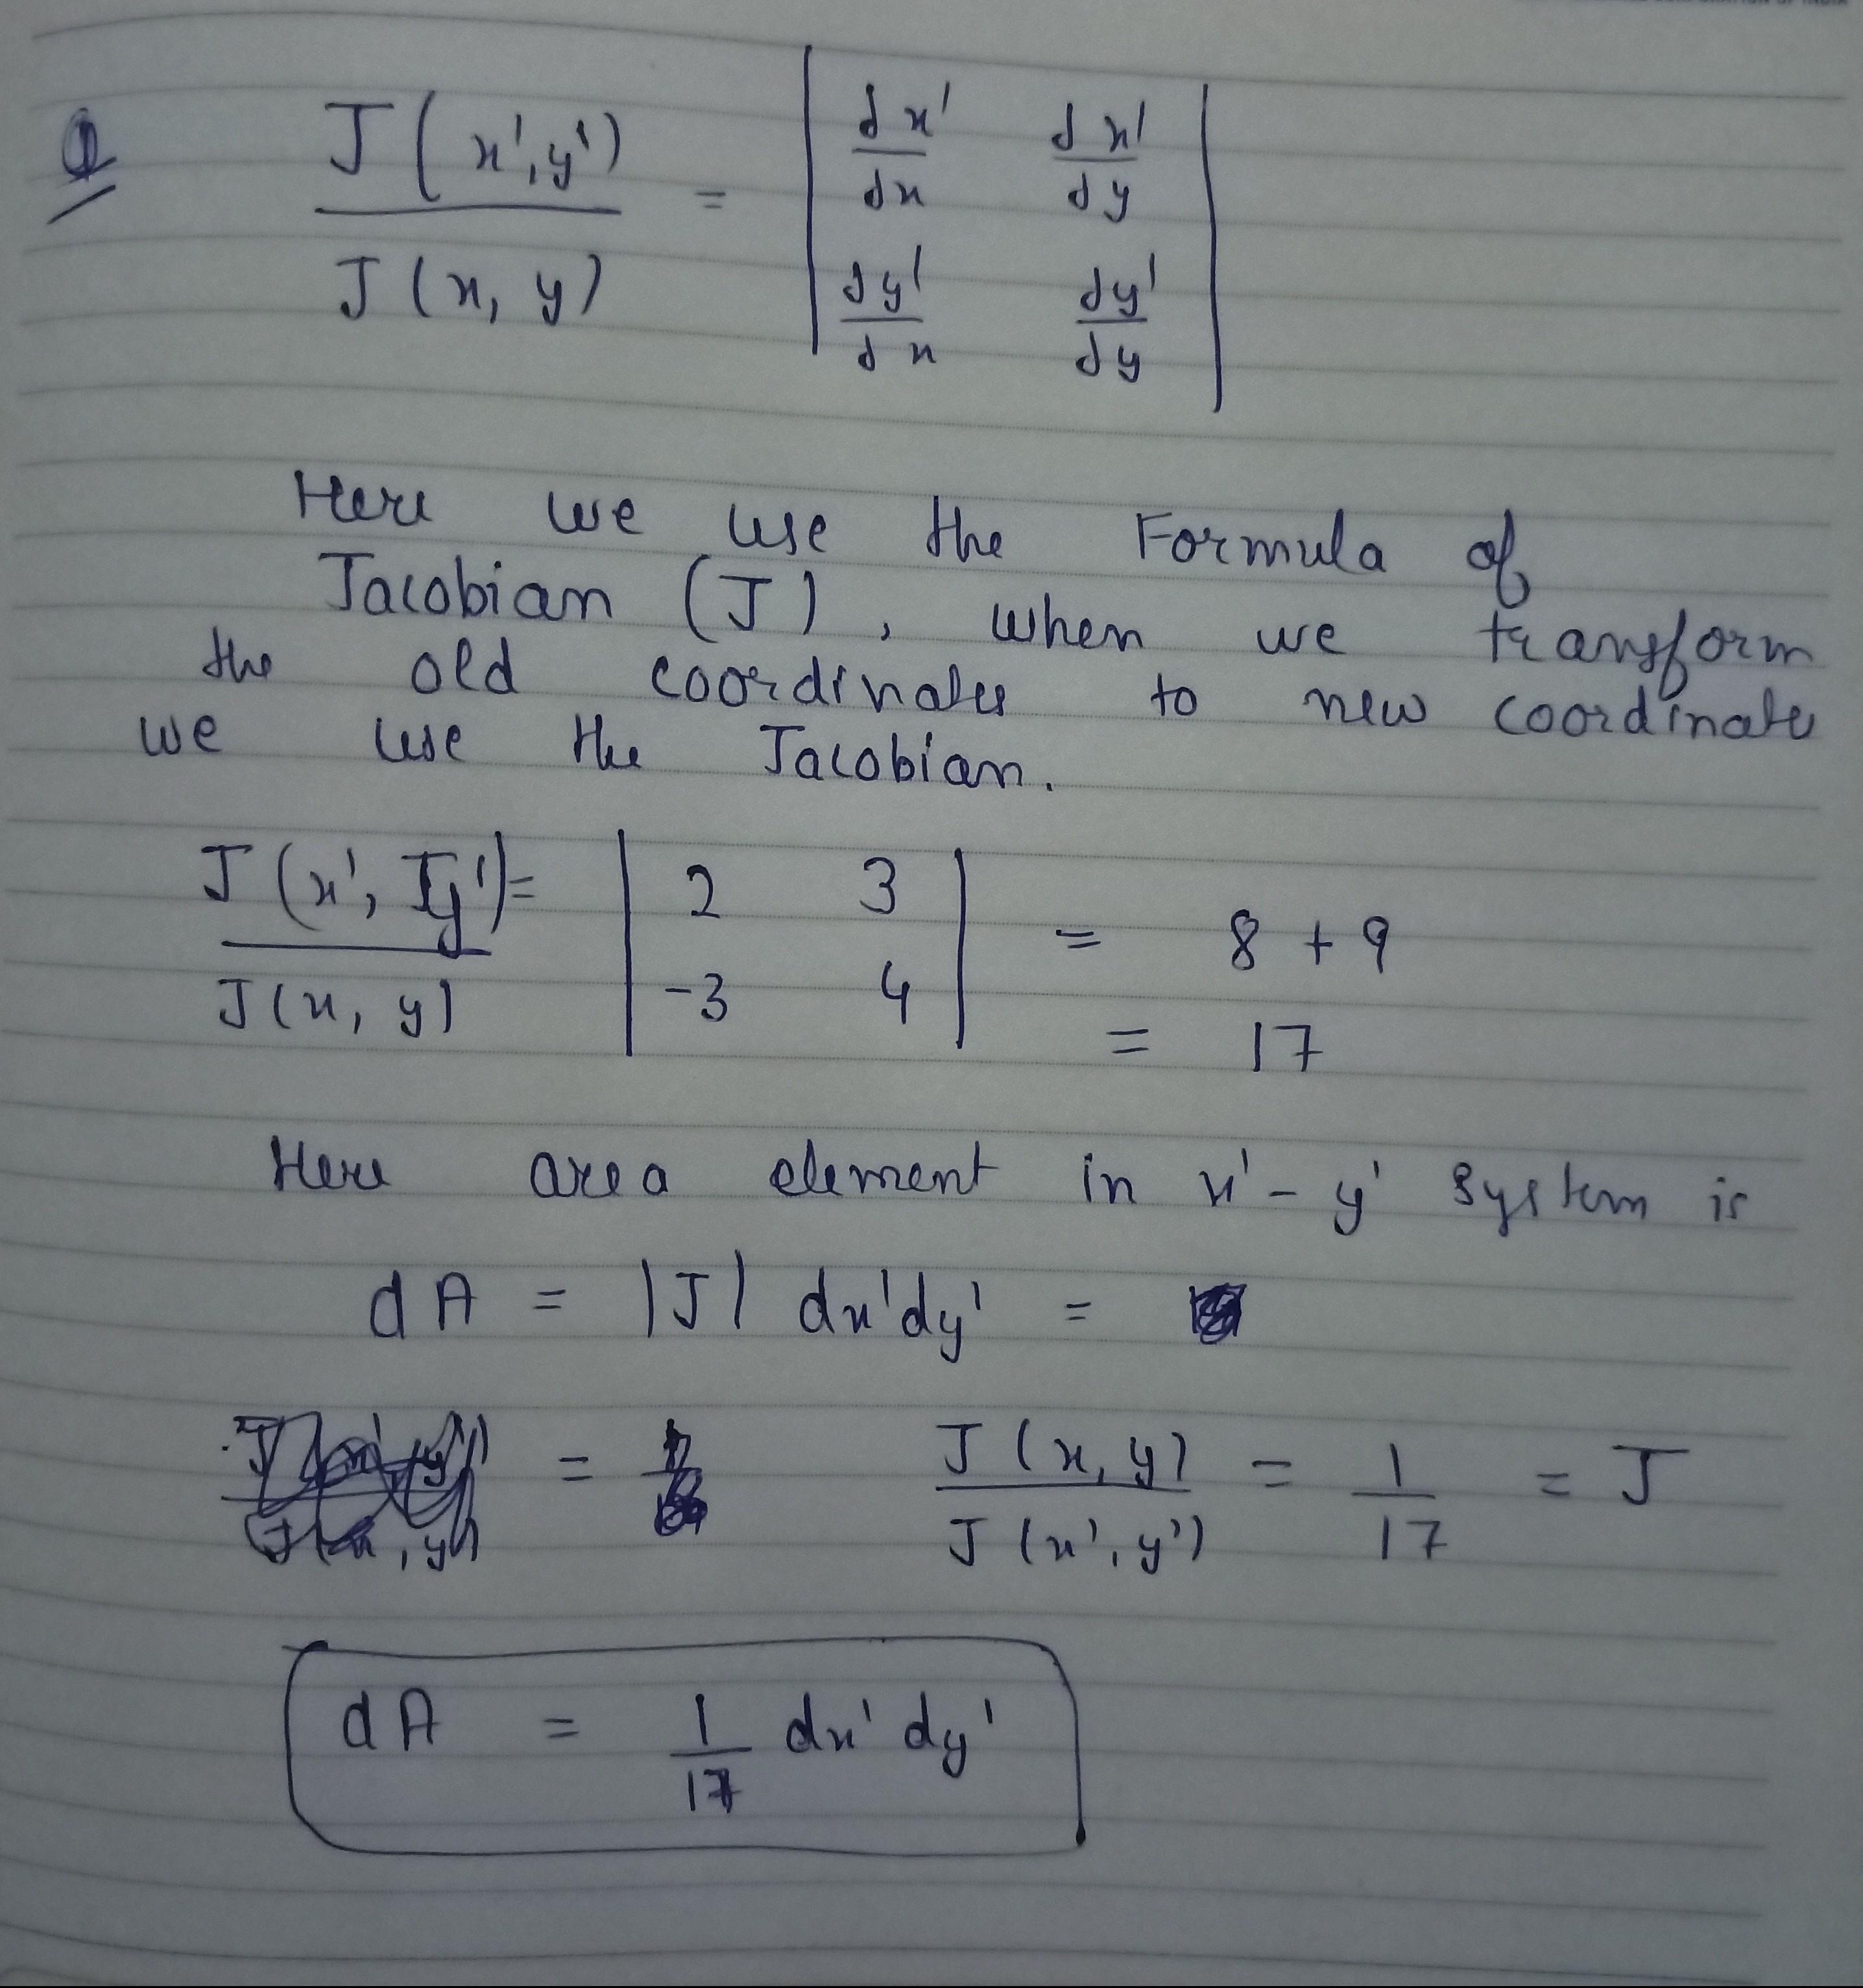 Q J(x',y') / J(x, y) = | dx'/dx dx'/dy |
| dy'/dx dy'/dy |
Here we use the Formula of
Jacobian (J), when we transform
the old coordinates to new coordinates
we use the Jacobian.
J(x', Jy') / J(x, y) = | 2 3 | = 8 + 9
| -3 4 | = 17
Here area element in x' - y' system is
dA = |J| dx'dy' =
= J(x, y) / J(x', y') = 1/17 = J
dA = 1/17 dx' dy'